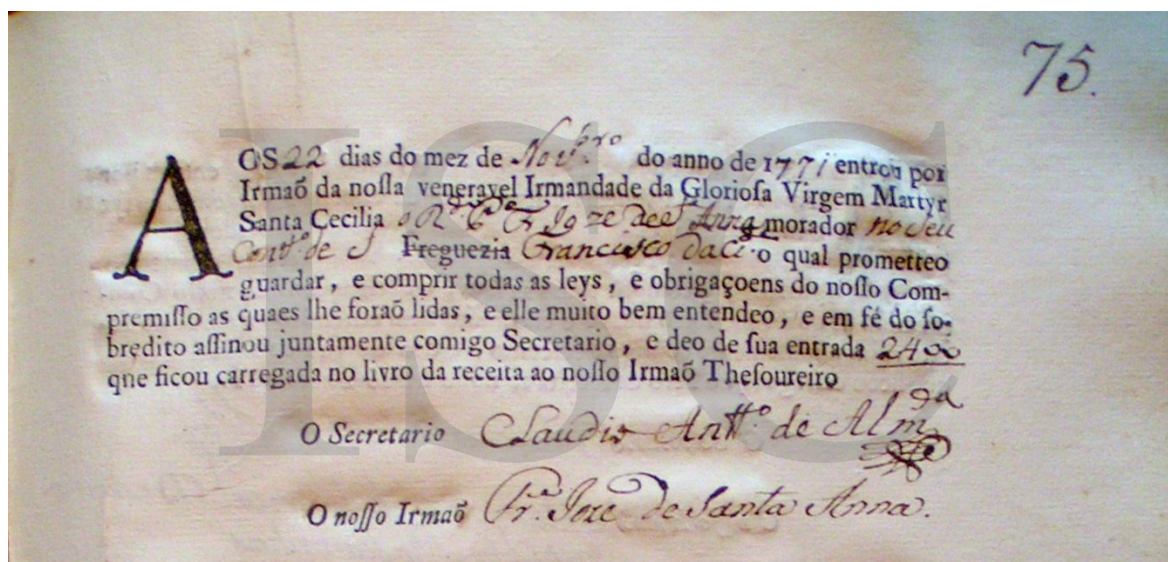 75.
AOS 22 dias do mez de Nov.bro do anno de 1771 entrou por
Irmaõ da noſſa veneravel Irmandade da Glorioſa Virgem Martyr
Santa Cecilia o R.o P.e Fr. Joze de S. Anna morador no seu
Cont.o de S. Freguezia Francisco da Ci.e o qual prometteo
guardar, e comprir todas as leys, e obrigaçoens do noſſo Com-
premiſſo as quaes lhe foraõ lidas, e elle muito bem entendeo, e em fé do ſo-
bredito aſſinou juntamente comigo Secretario, e deo de ſua entrada 2400
qne ficou carregada no livro da receita ao noſſo Irmaõ Theſoureiro
O Secretario Claudio Antt.o de Alm.da
O noſſo Irmaõ Fr. Joze de Santa Anna.
ISC